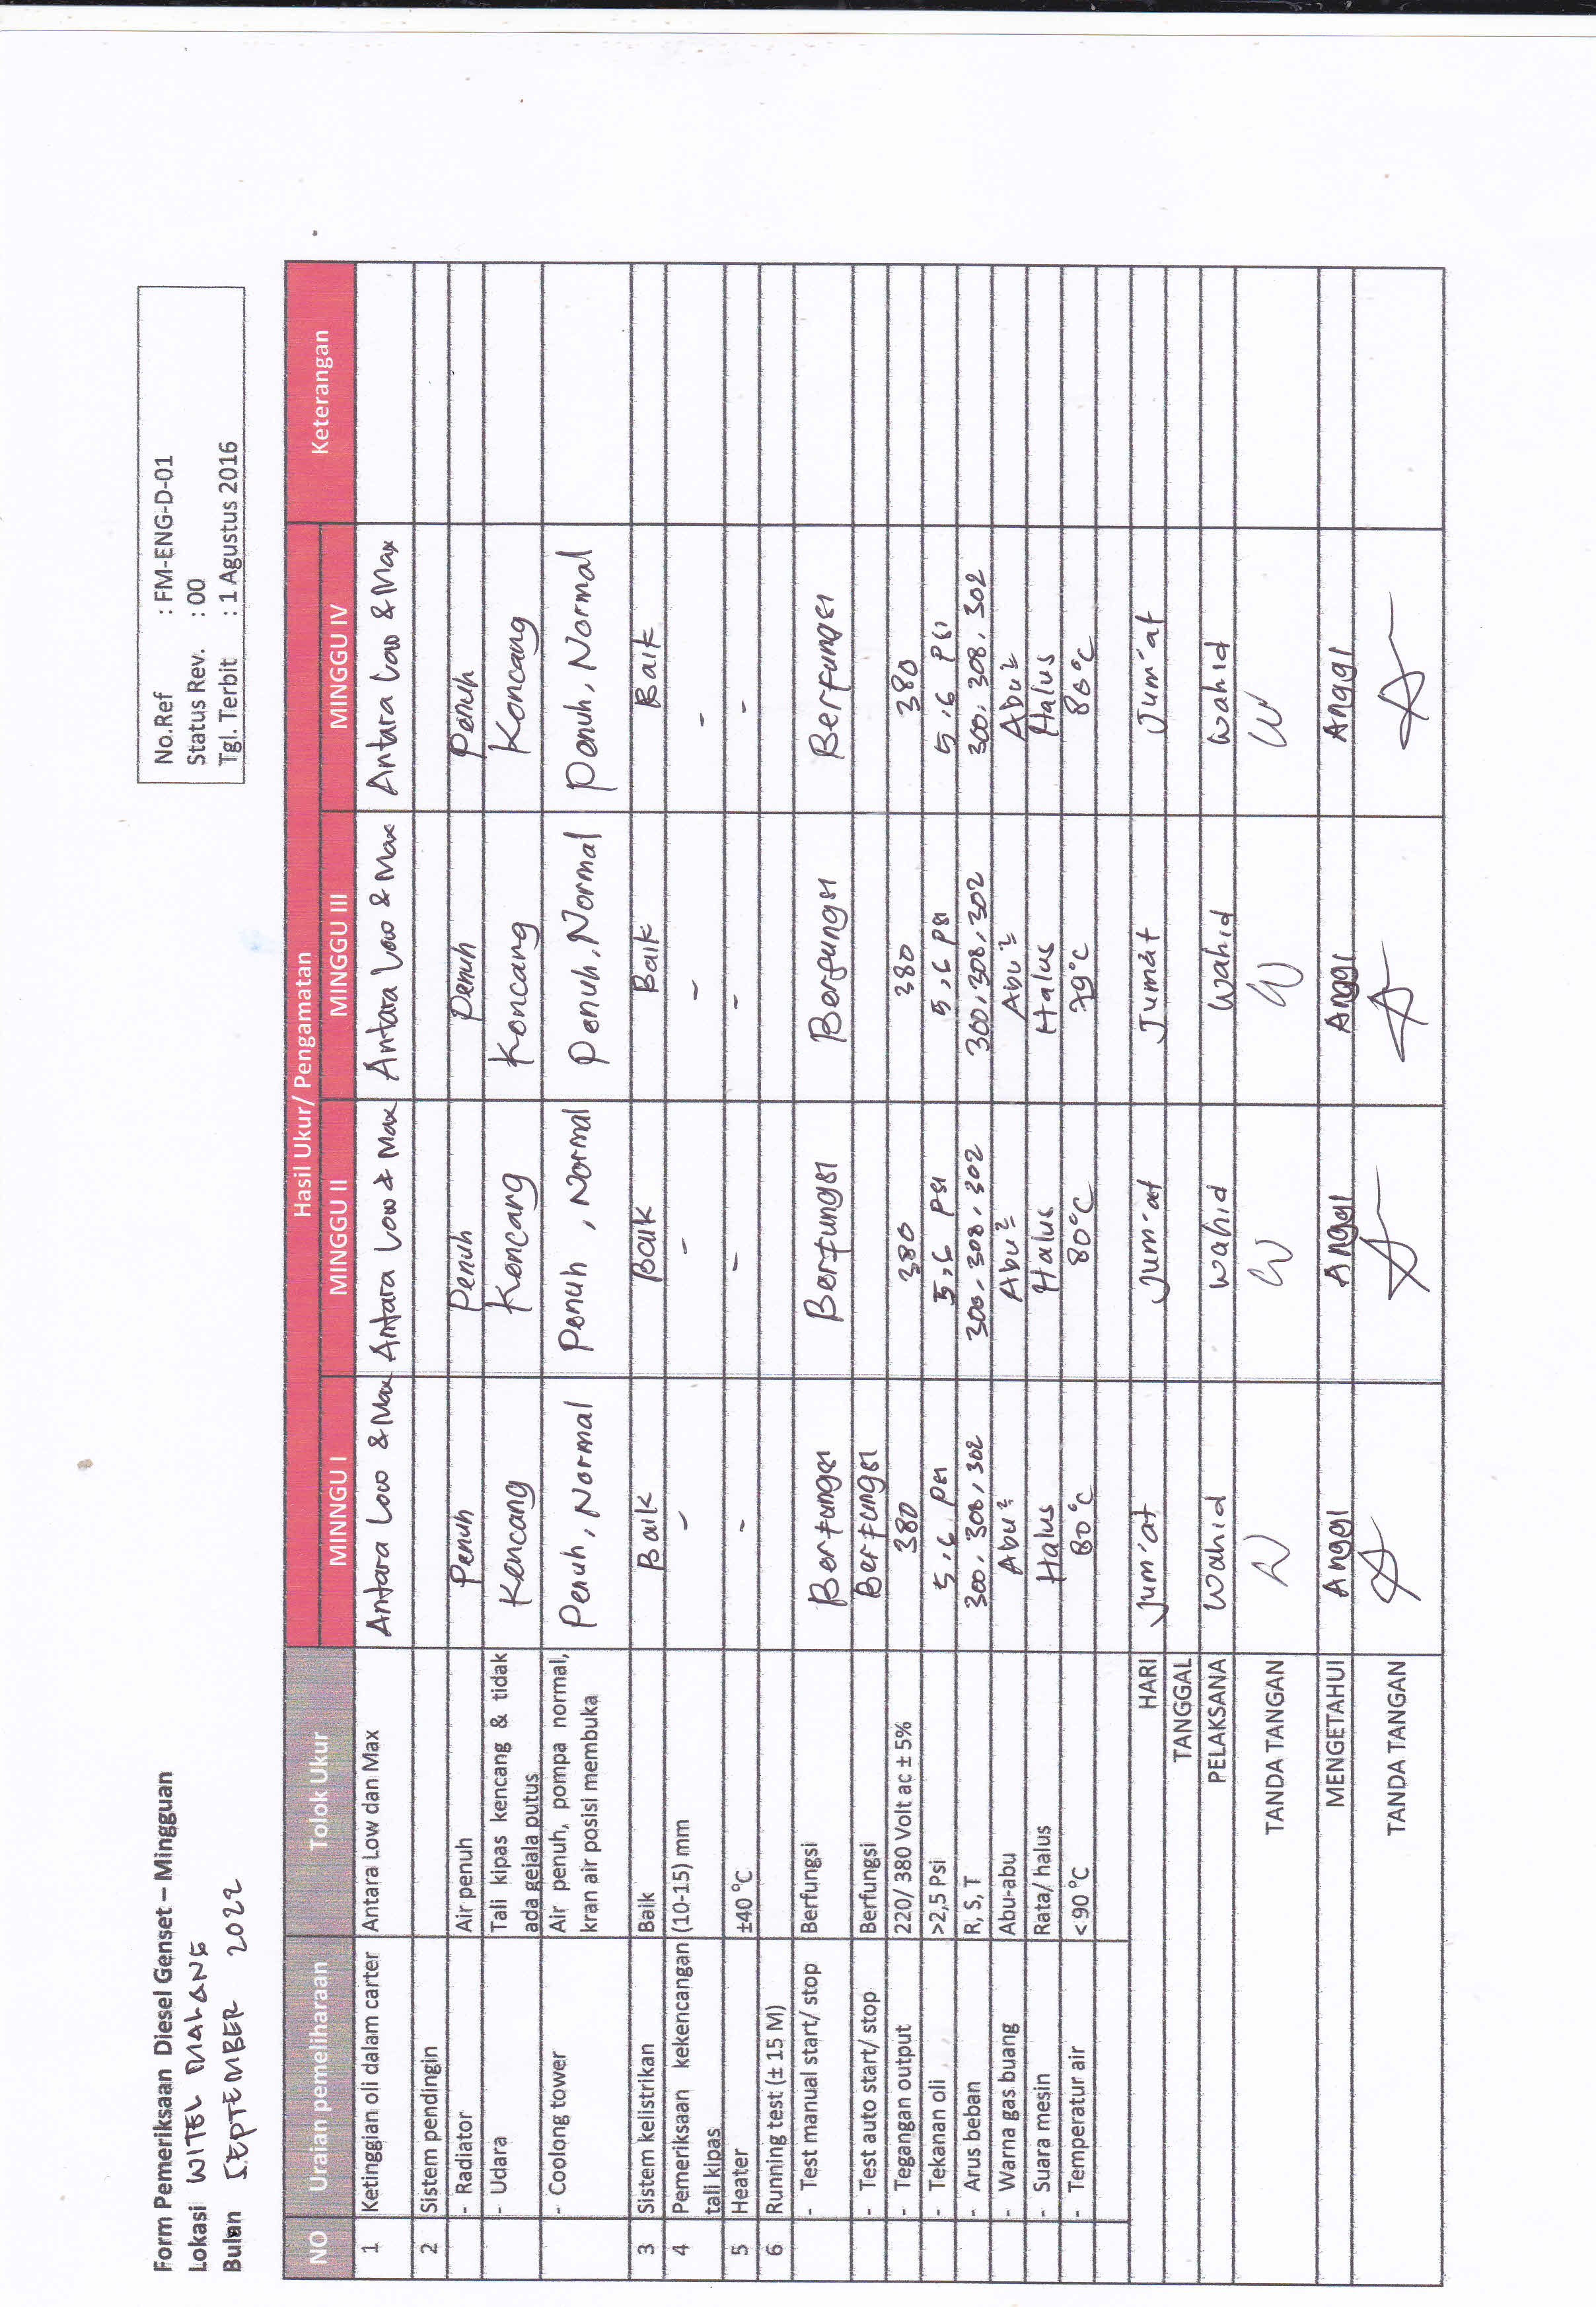 Form Pemeriksaan Diesel Genset – Mingguan
Lokasi WITEL MALANG
Bulan SEPTEMBER 2022
No.Ref : FM-ENG-D-01
Status Rev. : 00
Tgl. Terbit : 1 Agustus 2016
NO Uraian pemeliharaan Tolok Ukur Hasil Ukur/ Pengamatan Keterangan
MINNGU I MINGGU II MINGGU III MINGGU IV
1 Ketinggian oli dalam carter Antara Low dan Max Antara Low & Max Antara Low & Max Antara Low & Max Antara Low & Max
2 Sistem pendingin
- Radiator Air penuh Penuh Penuh Penuh Penuh
- Udara Tali kipas kencang & tidak Kencang Kencang Kencang Kencang
ada gejala putus
- Coolong tower Air penuh, pompa normal, Penuh, Normal Penuh, Normal Penuh, Normal Penuh, Normal
kran air posisi membuka
3 Sistem kelistrikan Baik Baik Baik Baik Baik
4 Pemeriksaan kekencangan (10-15) mm - - - -
tali kipas
5 Heater ±40 °C - - - -
6 Running test (± 15 M)
- Test manual start/ stop Berfungsi Berfungsi Berfungsi Berfungsi Berfungsi
- Test auto start/ stop Berfungsi Berfungsi
- Tegangan output 220/ 380 Volt ac ± 5% 380 380 380 380
- Tekanan oli >2,5 Psi 5,6 Psi 5,6 Psi 5,6 Psi 5,6 Psi
- Arus beban R, S, T 300, 308, 302 300, 308, 302 300, 308, 302 300, 308, 302
- Warna gas buang Abu-abu Abu² Abu² Abu² Abu²
- Suara mesin Rata/ halus Halus Halus Halus Halus
- Temperatur air < 90 °C 80°C 80°C 79°C 80°C
HARI Jum'at Jum'at Jum'at Jum'at
TANGGAL
PELAKSANA Wahid Wahid Wahid Wahid
TANDA TANGAN
MENGETAHUI Anggi Anggi Anggi Anggi
TANDA TANGAN